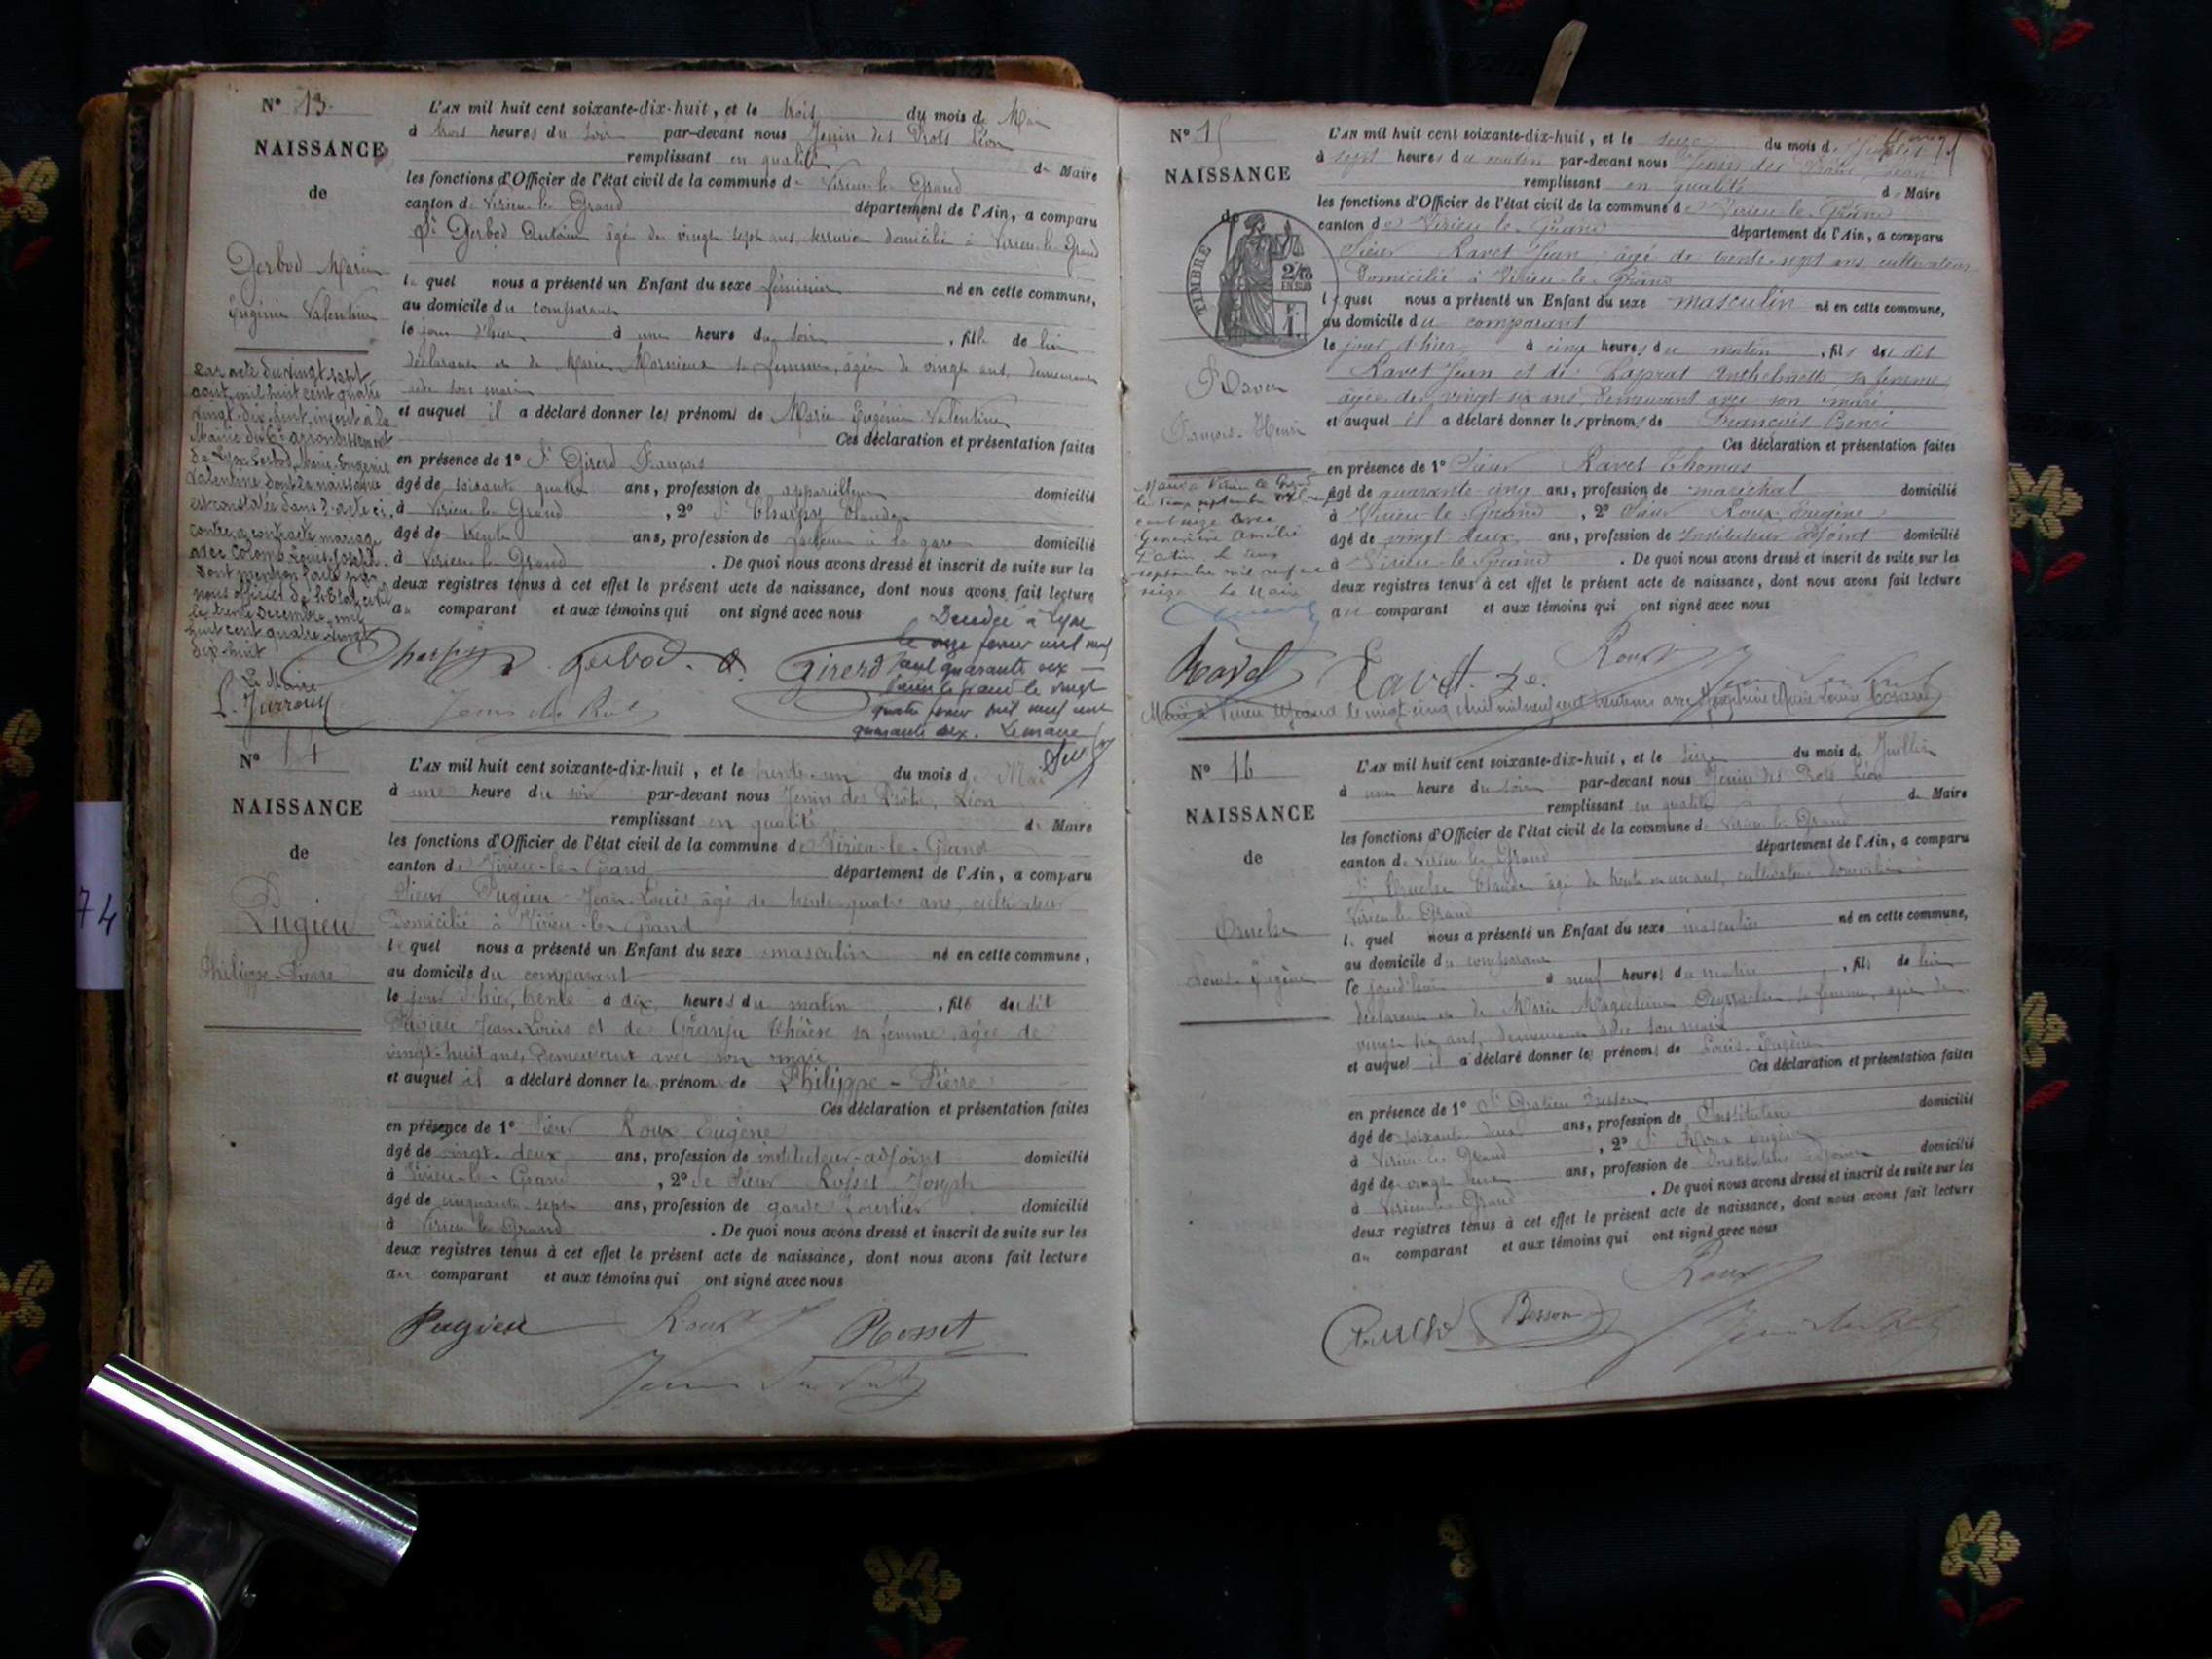 N° 13
NAISSANCE
de
Gerbod Marie
Eugénie Valentine
L'AN mil huit cent soixante-dix-huit, et le trois du mois de Mai
à trois heures du soir par-devant nous Jenin des Prots Léon
remplissant en qualité de Maire
les fonctions d'Officier de l'état civil de la commune de Virieu-le-Grand
canton de Virieu-le-Grand département de l'Ain, a comparu
Sr Gerbod Antoine âgé de vingt sept ans, serrurier domicilié à Virieu-le-Grand
lequel nous a présenté un Enfant du sexe féminin né en cette commune,
au domicile du comparant
le jour d'hier à une heure du soir, fille de lui
déclarant et de Marie sa femme, âgée de vingt ans, demeurant
avec son mari
et auquel il a déclaré donner les prénoms de Marie Eugénie Valentine
Ces déclaration et présentation faites
en présence de 1° Sr Girerd François
âgé de soixante quatre ans, profession de appareilleur domicilié
à Virieu-le-Grand, 2° Sr Charpy Claude
âgé de trente ans, profession de facteur à la gare domicilié
à Virieu-le-Grand. De quoi nous avons dressé et inscrit de suite sur les
deux registres tenus à cet effet le présent acte de naissance, dont nous avons fait lecture
au comparant et aux témoins qui ont signé avec nous
Par acte du vingt sept
août mil huit cent quatre
vingt-dix-huit, inscrit à la
Mairie du 6e arrondissement
de Lyon Gerbod, Marie, Eugénie
Valentine dont la naissance
est constatée dans l'acte ci-
contre, a contracté mariage
avec Colomb Louis Joseph.
Dont mention faite par
nous officier de l'Etat civil
le trente Décembre mil
huit cent quatre vingt
dix-huit
Le Maire
Décédée à Lyon
le onze février mil neuf
cent quarante six
Virieu le Grand le vingt
quatre février mil neuf cent
quarante six. Le maire
Charpy Gerbod. A. Girerd
N° 14
NAISSANCE
de
Pugieu
Philippe-Pierre
L'AN mil huit cent soixante-dix-huit, et le trente-un du mois de Mai
à une heure du soir par-devant nous Jenin des Prôts, Léon
remplissant en qualité de Maire
les fonctions d'Officier de l'état civil de la commune de Virieu-le-Grand
canton de Virieu-le-Grand département de l'Ain, a comparu
Sieur Pugieu Jean-Louis, âgé de trente-quatre ans, cultivateur
Domicilié à Virieu-le-Grand
lequel nous a présenté un Enfant du sexe masculin né en cette commune,
au domicile du comparant
le jour d'hier, trente à dix heures du matin, fils du dit
Pugieu Jean-Louis et de Granju Thérèse sa femme, âgée de
vingt-huit ans, Demeurant avec son mari
et auquel il a déclaré donner les prénom de Philippe-Pierre
Ces déclaration et présentation faites
en présence de 1° Sieur Roux Eugène
âgé de vingt-deux ans, profession de instituteur-adjoint domicilié
à Virieu-le-Grand, 2° de Sieur Rosset Joseph
âgé de cinquante-sept ans, profession de garde forestier domicilié
à Virieu le Grand. De quoi nous avons dressé et inscrit de suite sur les
deux registres tenus à cet effet le présent acte de naissance, dont nous avons fait lecture
au comparant et aux témoins qui ont signé avec nous
Pugieu Roux Rosset
74
N° 15
NAISSANCE
de
TIMBRE
Ravet
François-Henri
L'AN mil huit cent soixante-dix-huit, et le seize du mois de Juillet
à sept heures du matin par-devant nous Jenin des Prôts, Léon
remplissant en qualité de Maire
les fonctions d'Officier de l'état civil de la commune de Virieu-le-Grand
canton de Virieu-le-Grand département de l'Ain, a comparu
Sieur Ravet Jean, âgé de trente-sept ans, cultivateur
Domicilié à Virieu-le-Grand
lequel nous a présenté un Enfant du sexe masculin né en cette commune,
au domicile du comparant
le jour d'hier à cinq heures du matin, fils du dit
Ravet Jean et de Laprat Anthelmette sa femme
âgée de vingt-six ans, Demeurant avec son mari
et auquel il a déclaré donner les prénoms de François Henri
Ces déclaration et présentation faites
en présence de 1° Sieur Ravet Thomas
âgé de quarante-cinq ans, profession de maréchal domicilié
à Virieu-le-Grand, 2° Sieur Roux, Eugène
âgé de vingt deux ans, profession de Instituteur Adjoint domicilié
à Virieu-le-Grand. De quoi nous avons dressé et inscrit de suite sur les
deux registres tenus à cet effet le présent acte de naissance, dont nous avons fait lecture
au comparant et aux témoins qui ont signé avec nous
Marié à Virieu le Grand
septembre mil neuf
cent seize avec
Geneviève Amélie
septembre mil neuf cent
seize Le Maire
Ravet Ravet Roux
Marié à Virieu le Grand le vingt cinq Août mil neuf cent avec Joséphine Marie Louise
N° 16
NAISSANCE
de
Cruche
Louis-Eugène
L'AN mil huit cent soixante-dix-huit, et le seize du mois de Juillet
à une heure du soir par-devant nous Jenin des Prots Léon
remplissant en qualité de Maire
les fonctions d'Officier de l'état civil de la commune de Virieu-le-Grand
canton de Virieu-le-Grand département de l'Ain, a comparu
Sr Cruche Claude âgé de trente et un ans, cultivateur domicilié à
Virieu-le-Grand
lequel nous a présenté un Enfant du sexe masculin né en cette commune,
au domicile du comparant
le jour d'hier à neuf heures du matin, fils de lui
déclarant et de Marie Magdeleine sa femme, âgée de
vingt six ans, demeurant avec son mari
et auquel il a déclaré donner les prénoms de Louis-Eugène
Ces déclaration et présentation faites
en présence de 1° Sr Besson
âgé de soixante-deux ans, profession de Instituteur domicilié
à Virieu-le-Grand, 2° Sr Roux Eugène
âgé de vingt deux ans, profession de Instituteur adjoint domicilié
à Virieu-le-Grand. De quoi nous avons dressé et inscrit de suite sur les
deux registres tenus à cet effet le présent acte de naissance, dont nous avons fait lecture
au comparant et aux témoins qui ont signé avec nous
Roux
Cruche Besson